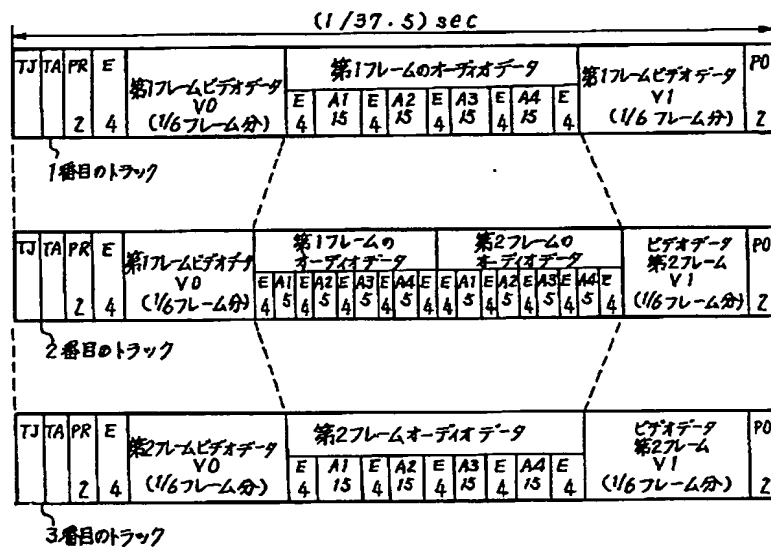 (1/37.5) sec
TJ TA PR 2 E 4
第1フレームビデオデータ
V0
(1/6フレーム分)
第1フレームのオーディオデータ
E 4 A1 15 E 4 A2 15 E 4 A3 15 E 4 A4 15 E 4
第1フレームビデオデータ
V1
(1/6フレーム分)
PO 2
1番目のトラック
TJ TA PR 2 E 4
第1フレームビデオデータ
V0
(1/6フレーム分)
第1フレームの
オーディオデータ
E 4 A1 5 E 4 A2 5 E 4 A3 5 E 4 A4 5 E 4
第2フレームの
オーディオデータ
E 4 A1 5 E 4 A2 5 E 4 A3 5 E 4 A4 5 E 4
ビデオデータ
第2フレーム
V1
(1/6フレーム分)
PO 2
2番目のトラック
TJ TA PR 2 E 4
第2フレームビデオデータ
V0
(1/6フレーム分)
第2フレームオーディオデータ
E 4 A1 15 E 4 A2 15 E 4 A3 15 E 4 A4 15 E 4
ビデオデータ
第2フレーム
V1
(1/6フレーム分)
PO 2
3番目のトラック